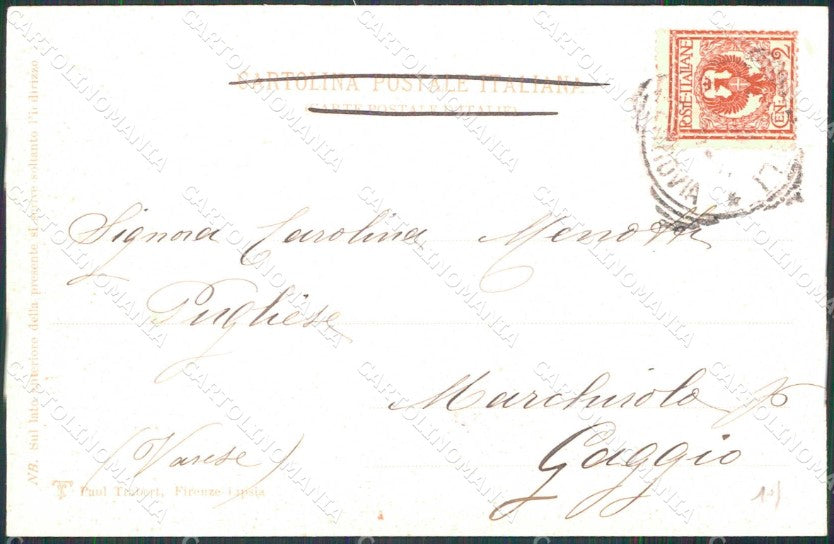 CARTOLINA POSTALE ITALIANA
(CARTE POSTALE D'ITALIE)
POSTE·ITALIANE
CENT. 2
Signora Carolina Menotti
Pugliese
Marchirolo p
Gaggio
(Varese)
NB. Sul lato anteriore della presente si scrive soltanto l'indirizzo.
Paul Trabert, Firenze Lipsia
CARTOLINOMANIA